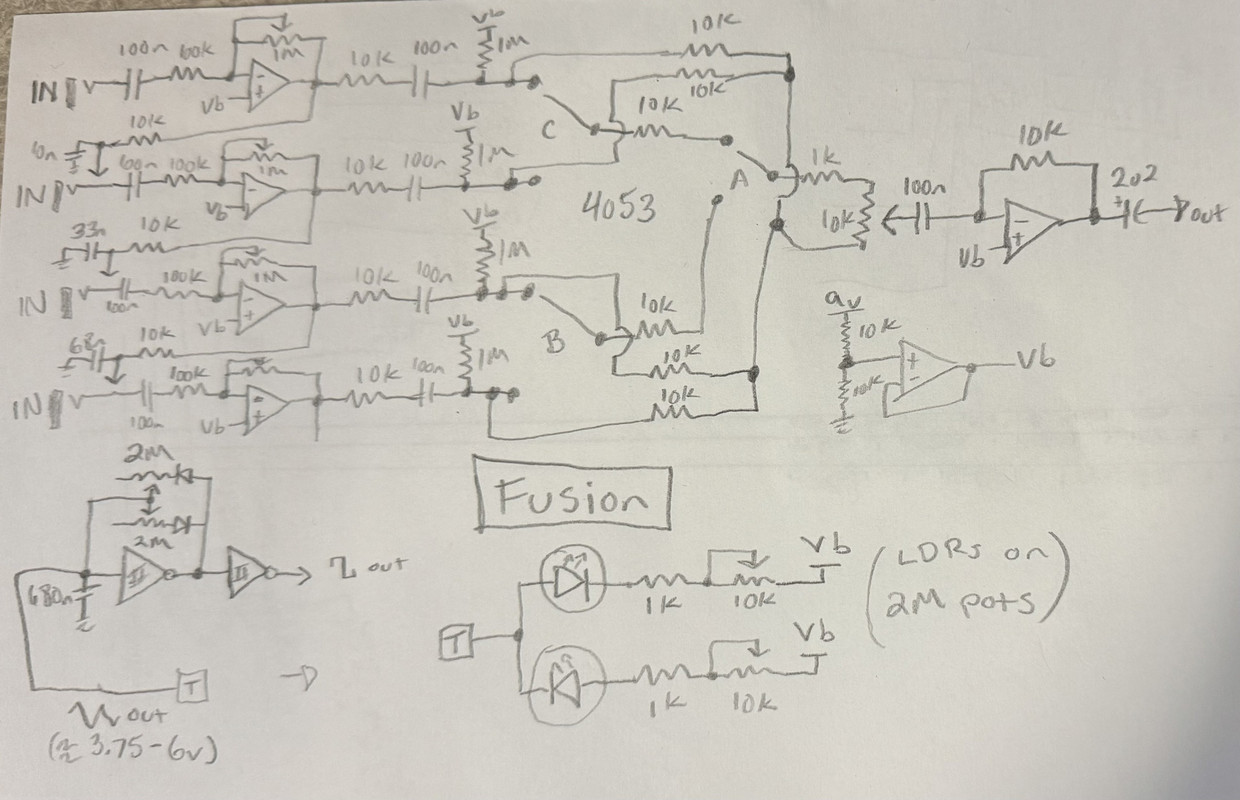 Vb
10K
100n 60K 1M 10K 100n 1M
IN
Vb
10K
C 10K
10K
Vb
100K 1M 10K 100n 1M
IN
Vb
4053
A 1K
10K
100n
10K
2u2
out
Vb
33n 10K
Vb
1M
100K 1M 10K 100n
IN
100n
Vb
B 10K
10K
10K
9v
10K
10K
Vb
68n 10K
Vb
1M
100K 10K 100n
IN
100n
Vb
2M
2M
680n
out
T
out
(≈ 3.75-6v)
Fusion
T
1K 10K
Vb
1K 10K
Vb
(LDRs on
2M pots)